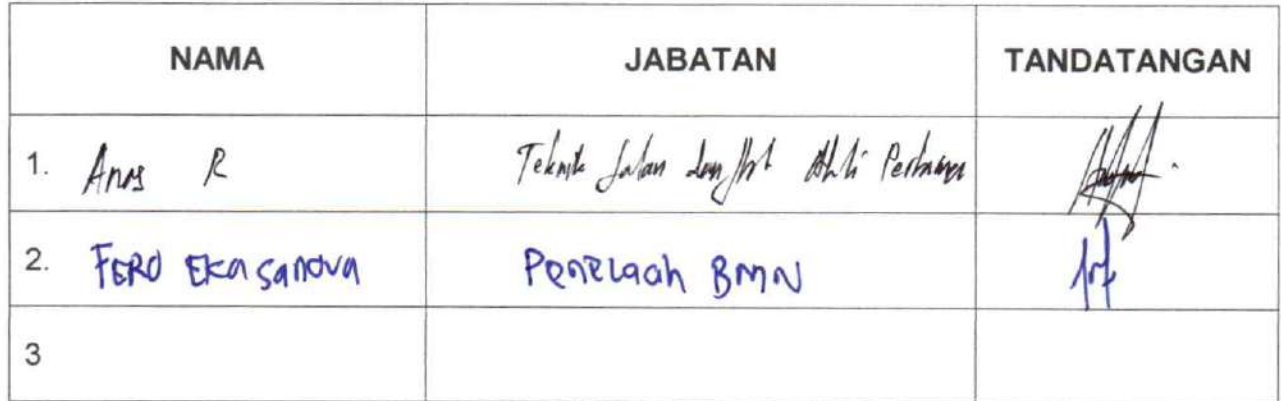 NAMA JABATAN TANDATANGAN
1. Anas R Teknik Jalan dan Ahli Pertama
2. FERO EKASANOVA Penelaah BMN
3